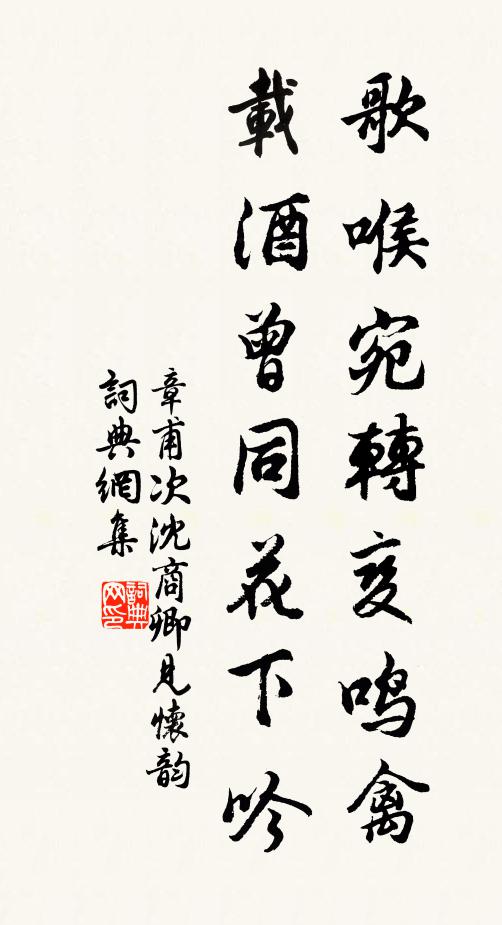 歌喉宛轉変鸣禽
載酒曾同花下吟
章甫次沈商卿見懷韵
詞典網集
詞典网印